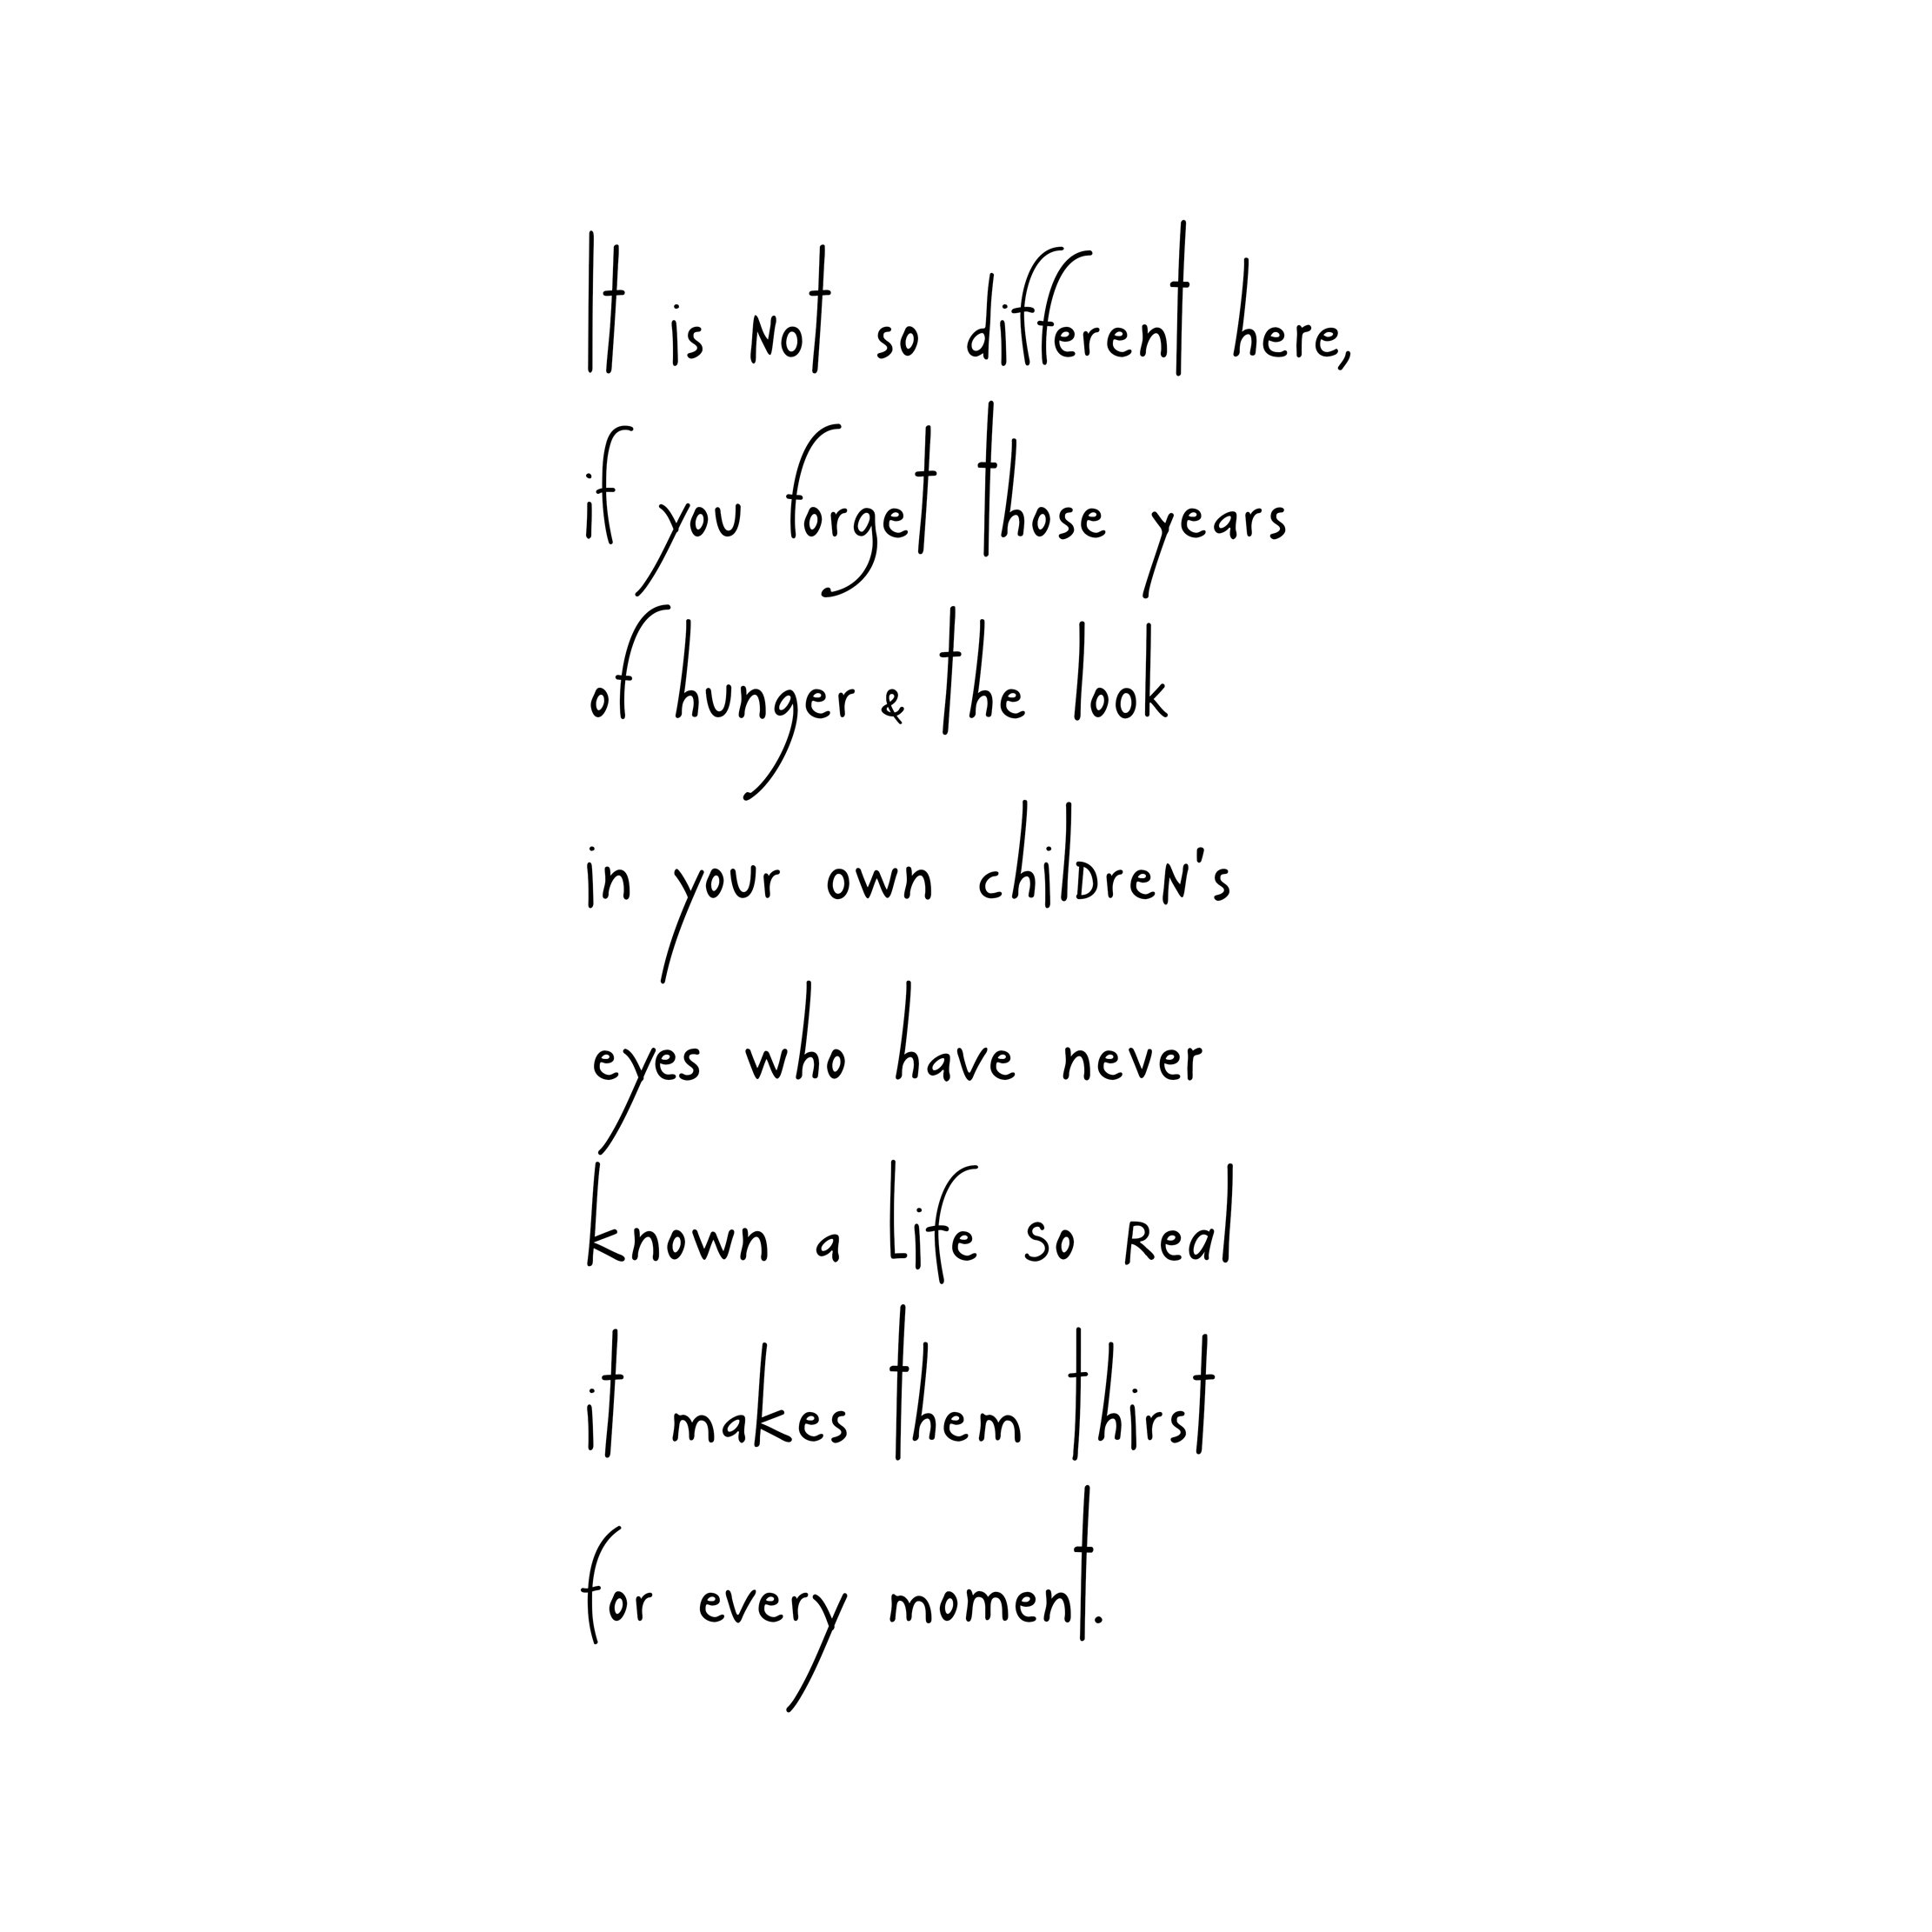 It is not so different here,
if you forget those years
of hunger & the look
in your own children's
eyes who have never
known a Life so Real
it makes them thirst
for every moment.